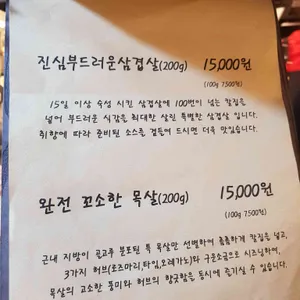 진심부드러운삼겹살(200g) 15,000원
(100g 7,500원)
15일 이상 숙성 시킨 삼겹살에 100번이 넘는 칼집을
넣어 부드러운 식감을 최대한 살린 특별한 삼겹살 입니다.
취향에 따라 준비된 소스를 곁들여 드시면 더욱 맛있습니다.
완전 꼬소한 목살(200g) 15,000원
(100g 7,500원)
근내 지방이 골고루 분포된 특 목살만 선별하여 촘촘하게 칼집을 넣고,
3가지 허브(로즈마리,타임,오레가노)와 구운소금으로 시즈닝하여,
목살의 고소한 풍미와 허브의 향긋함을 동시에 즐기실 수 있습니다.